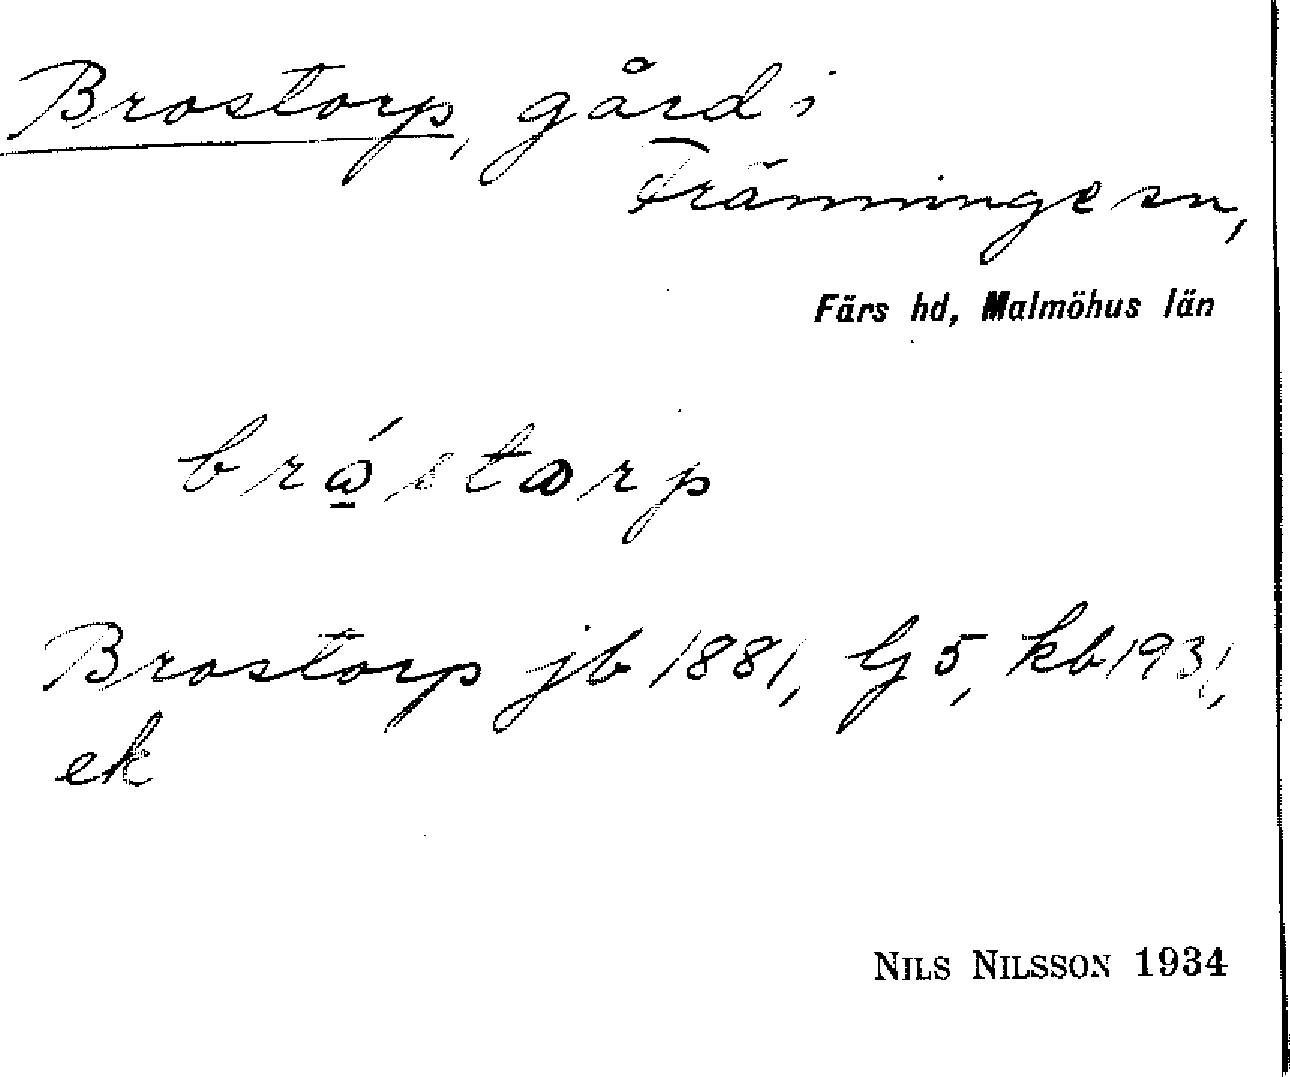 Brostorp, gård i
Tränninge sn,
Färs hd, Malmöhus län
brώ̱stωrp
Brostorp jb 1881, G 5, kb 1931,
ek
NILS NILSSON 1934